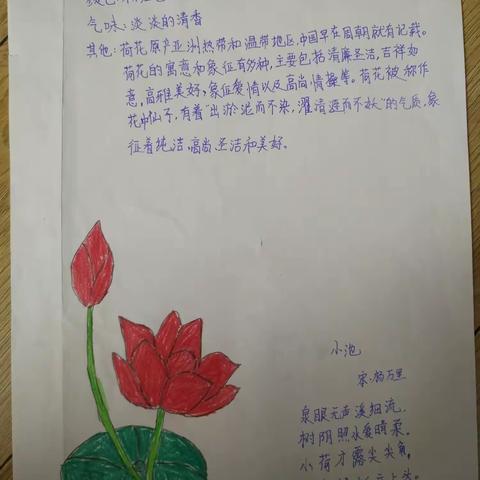 气味:淡淡的清香
其他:荷花原产亚洲热带和温带地区,中国早在周朝就有记载。
荷花的寓意和象征有多种,主要包括清廉圣洁,吉祥如
意,高雅美好,象征爱情以及高尚情操等。荷花被称作
花中仙子,有着“出淤泥而不染,濯清涟而不妖”的气质,象
征着纯洁、高尚、圣洁和美好。
小池
宋·杨万里
泉眼无声溪细流,
树阴照水爱晴柔。
小荷才露尖尖角,